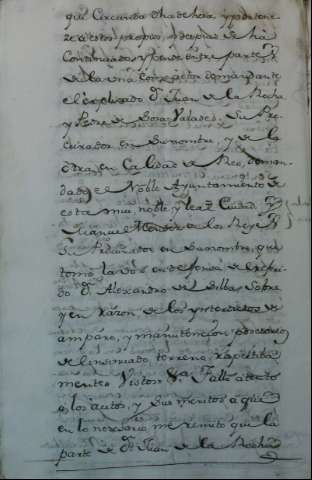 que Circunda dha dehesa, y
estos propios
Continuados y pende entre partes
de la una Como actor demandante
el expresado Dn Juan de la Rocha
y Pedro de Boras Valades Su Pro
curador en Su nombre, y de la
otra, en Calidad de Reo, deman-
dado, el Noble Ayuntamiento de
esta mui noble y leal Ciudad, y
Manuel de los Reyes
Su Procurador en Su nombre, que
tomo la vos en defensa del referi
do Dn Alexandro de Silba, sobre
y en razon, de los ynterdictos de
amparo, y manutencion
del insinuado, terreno, repetida
mente Vistos &a Fallo atento
a los autos, y Sus meritos a que
en lo nesesario me remito que la
parte de Dn Juan de la Rocha